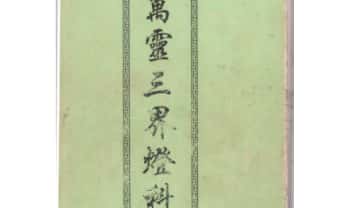 萬靈三界燈科